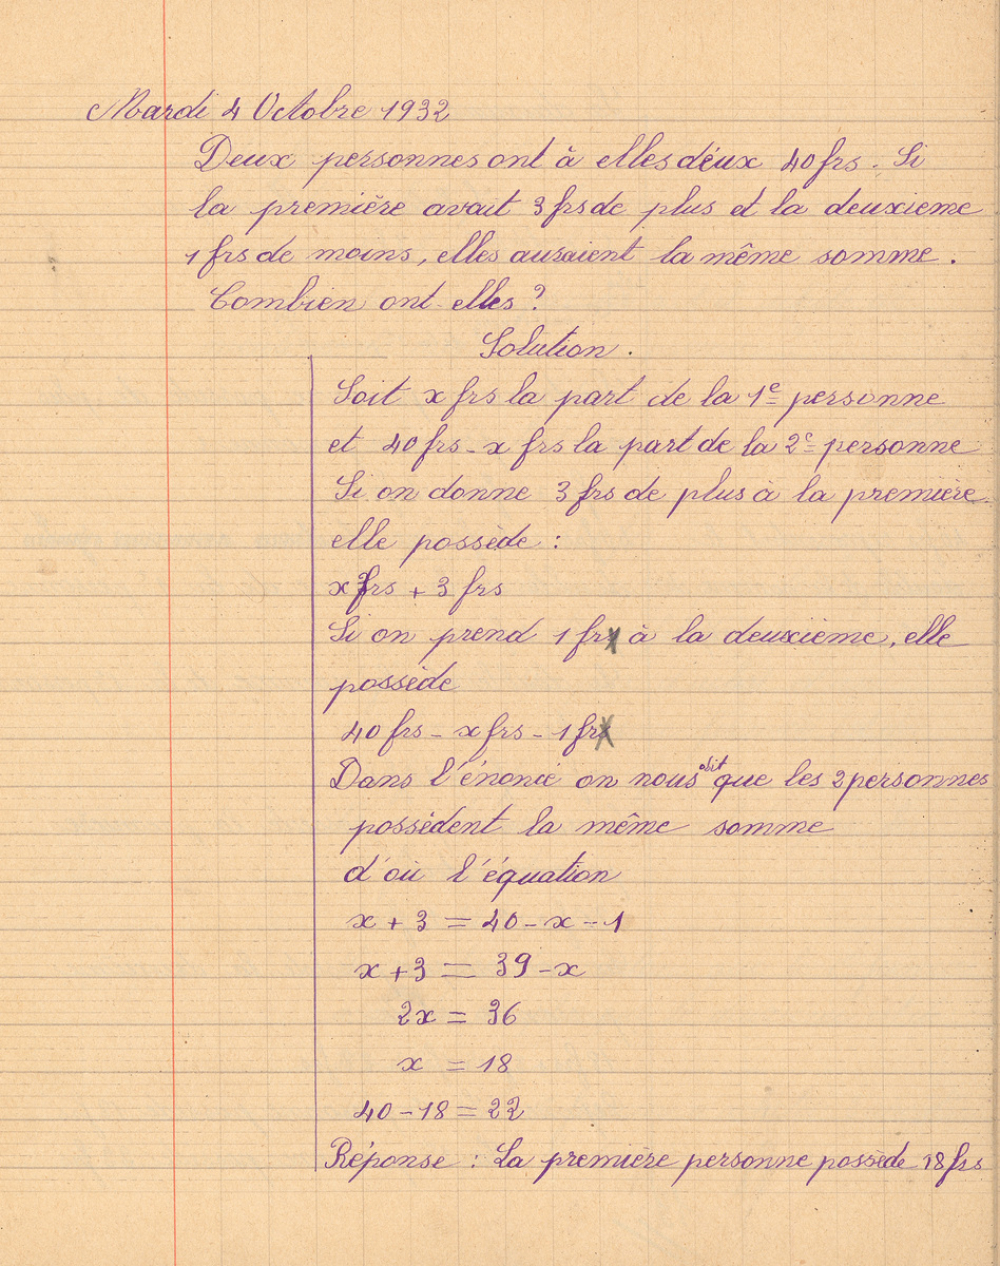 Mardi 4 Octobre 1932
Deux personnes ont à elles deux 40 frs. Si
la première avait 3 frs de plus et la deuxième
1 frs de moins, elles auraient la même somme.
Combien ont-elles ?
Solution.
Soit x frs la part de la 1e personne
et 40 frs - x frs la part de la 2e personne
Si on donne 3 frs de plus à la première
elle possède :
x frs + 3 frs
Si on prend 1 fr à la deuxième, elle
possède
40 frs - x frs - 1 fr
Dans l'énoncé on nous dit que les 2 personnes
possèdent la même somme
d'où l'équation
x + 3 = 40 - x - 1
x + 3 = 39 - x
2x = 36
x = 18
40 - 18 = 22
Réponse : La première personne possède 18 frs